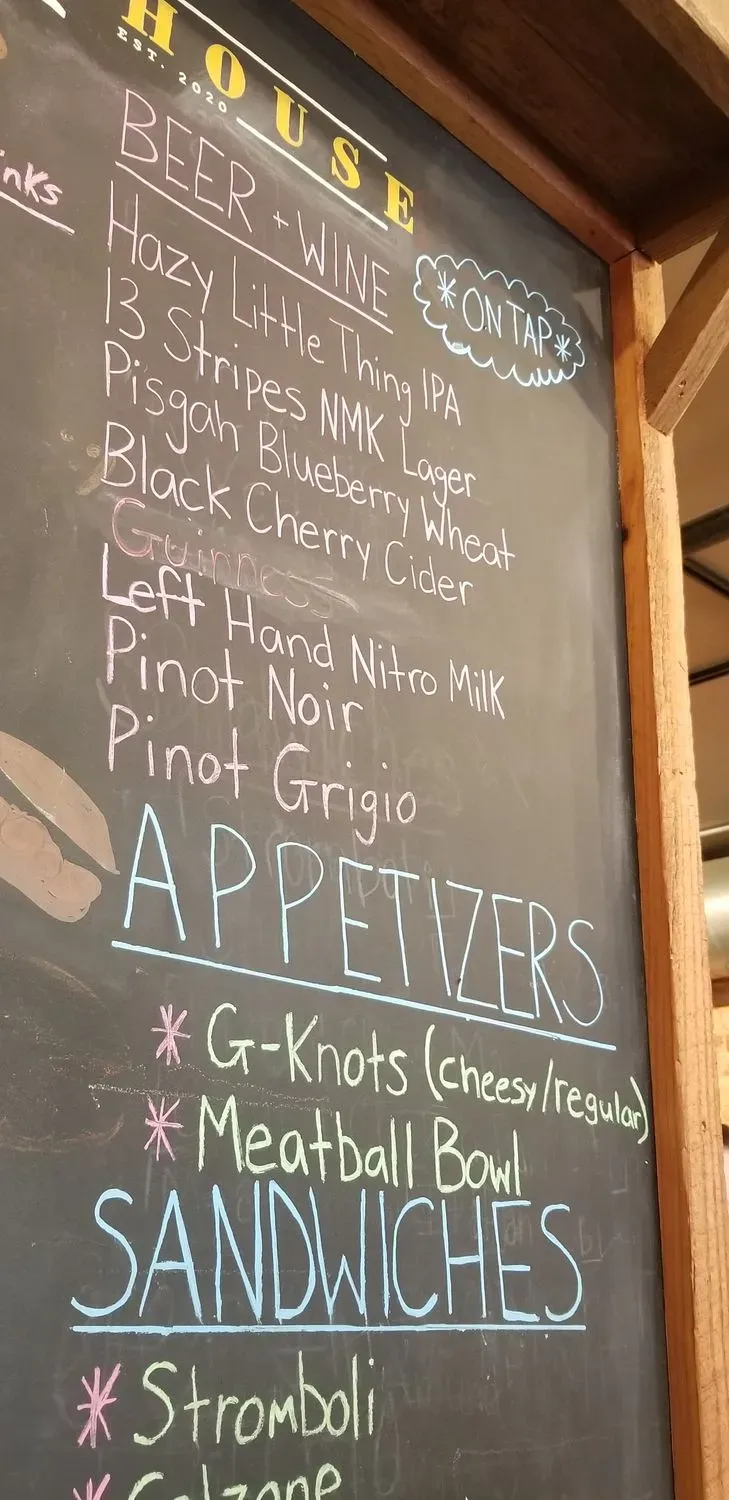 HOUSE
EST. 2020
BEER + WINE
inks
*ON TAP*
Hazy Little Thing IPA
13 Stripes NMK Lager
Pisgah Blueberry Wheat
Black Cherry Cider
Guinness
Left Hand Nitro Milk
Pinot Noir
Pinot Grigio
APPETIZERS
* G-Knots (cheesy/regular)
* Meatball Bowl
SANDWICHES
* Stromboli
* Calzone